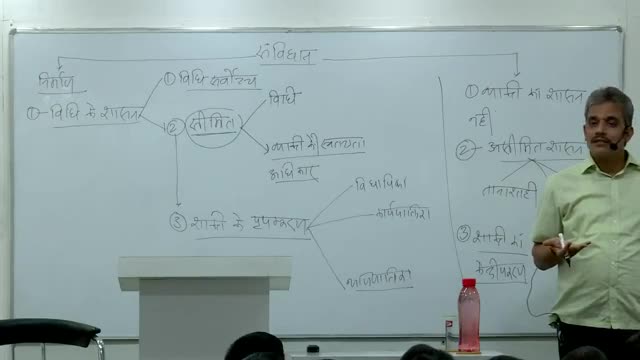 संविधान
निर्माण
① विधि के शासन
① विधि सर्वोच्च
② सीमित
विधि
व्यक्ति की स्वतंत्रता
अधिकार
③ शक्ति के पृथक्करण
विधायिका
कार्यपालिका
न्यायपालिका
① व्यक्ति का शासन
नहीं
② असीमित शासन
तानाशाही
③ शक्ति का
केन्द्रीयकरण